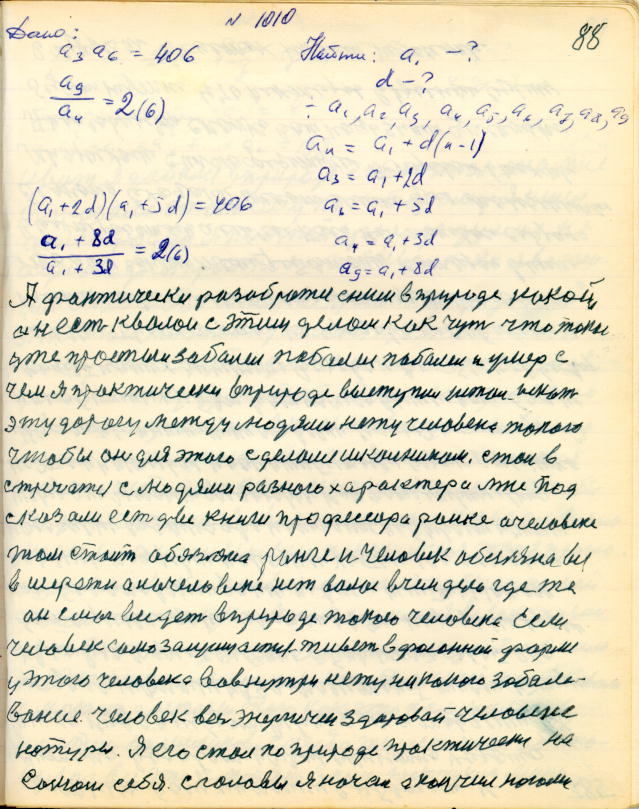 N 1010
88
Дано:
a₃ a₆ = 406
a₉ / a₄ = 2 (6)
Найти: a₁ – ?
d – ?
÷ a₁, a₂, a₃, a₄, a₅, a₆, a₇, a₈, a₉
aₙ = a₁ + d(n-1)
a₃ = a₁ + 2d
(a₁ + 2d)(a₁ + 5d) = 406
a₆ = a₁ + 5d
(a₁ + 8d) / (a₁ + 3d) = 2 (6)
a₄ = a₁ + 3d
a₉ = a₁ + 8d
Я фактически с ним в природе
он ест с этим делом как чут что
уже простыл забалел побалел побалел и умер с
чем я практически в природе выступил искат
эту дорогу между людями нету человека такого
чтобы он для этого сделался школником. стал в
стречатся с людями разного характера мне под
сказали ест две книги професора ранке о человеке
там стоит обязяна ранге и человек
в шерсти а на человеке нет в чем дело где же
он в природе такого человека Если
человек самозащищается живет в форме
у этого человека вовнутри нету никакого забале-
вание. человек вен энергичен здоровай человек
натуры. Я его стал по природе практически на
самом себя. с головы я начал а кончил ногами